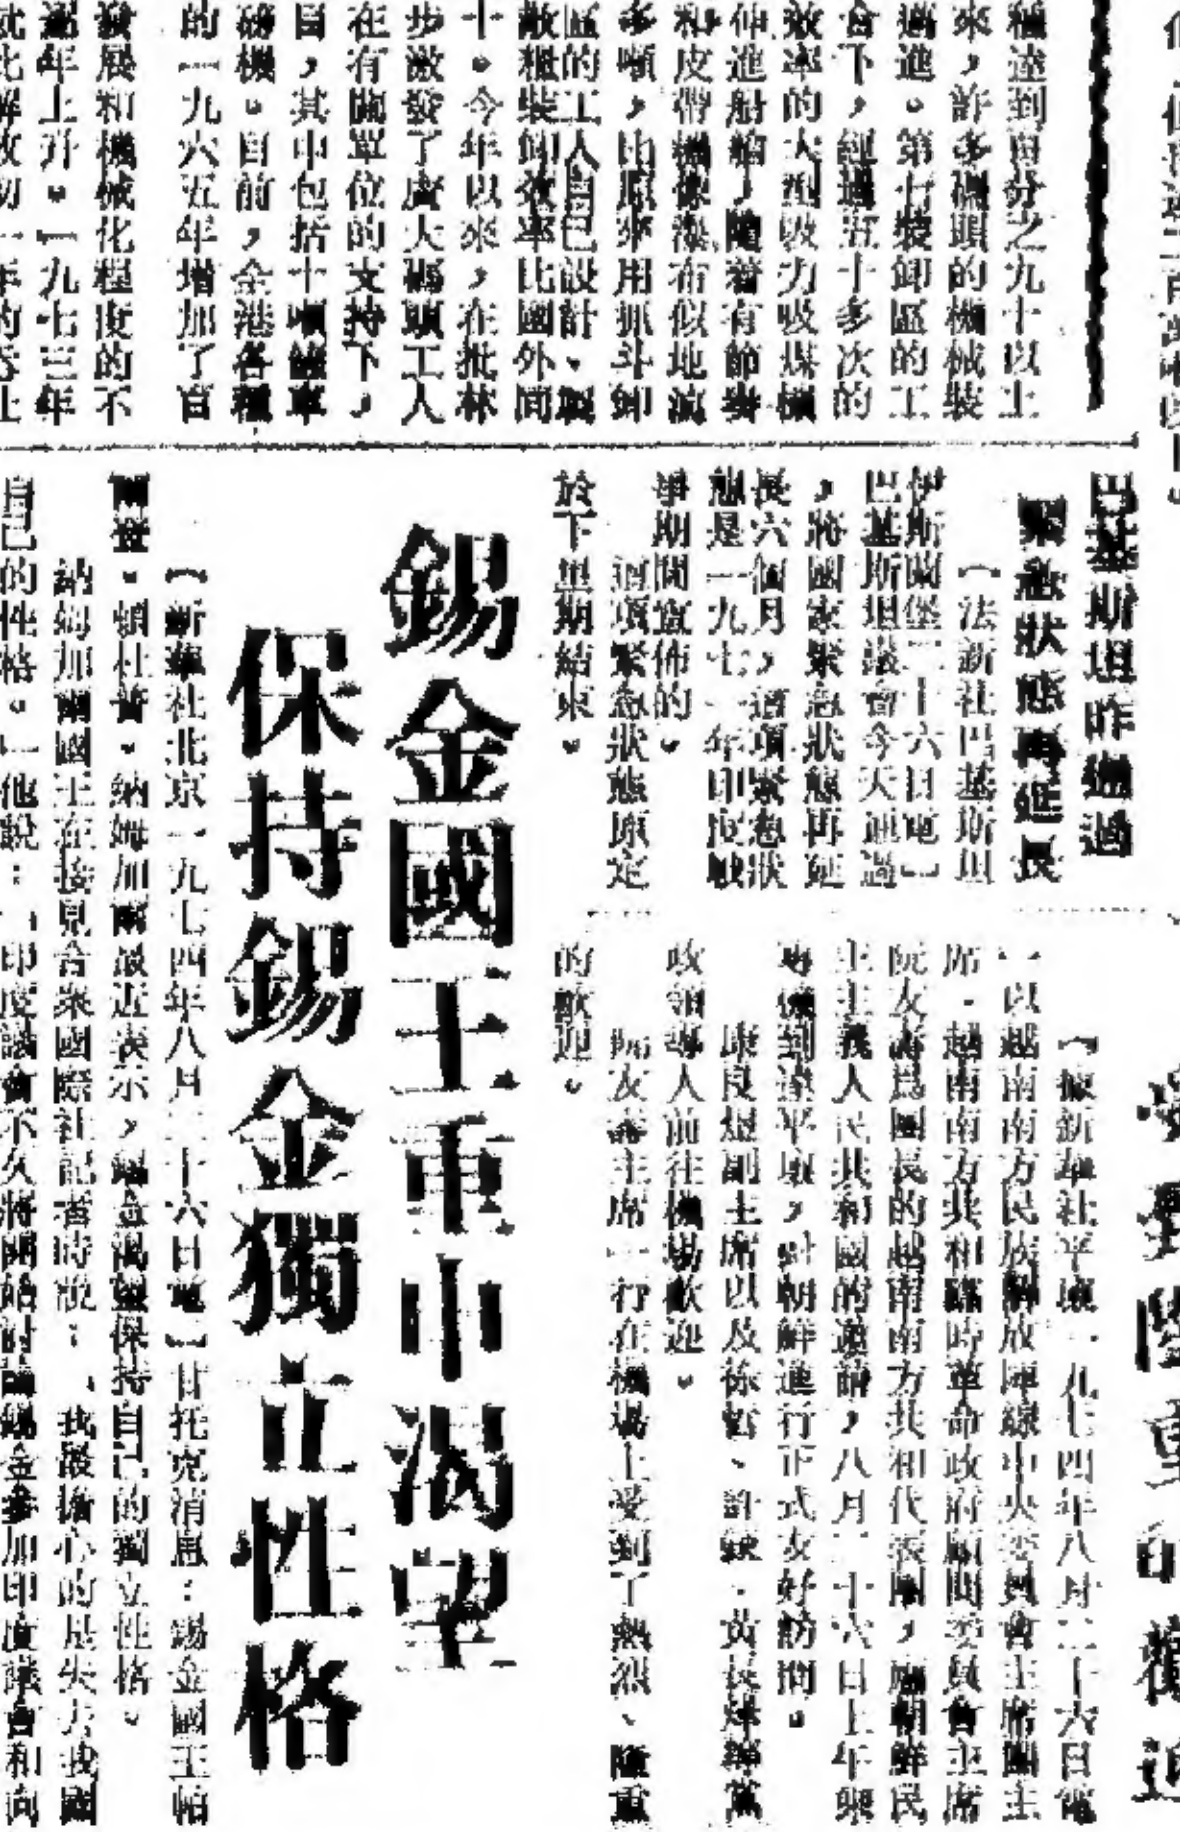 種達到百分之九十以上
來，許多碼頭的機械裝
邁進。第七裝卸區的工
合下，經過五十多次的
效率的大型吸力吸煤機
伸進船艙，隨着有節奏
和皮帶機像瀑布似地流
多噸，比原來用抓斗卸
區的工人自己設計、製
散糧裝卸效率比國外同
十。今年以來，在批林
步激發了廣大碼頭工人
在有關單位的支持下，
目，其中包括十噸鏟車
磅機。目前，全港各種
的一九六五年增加了百
發展和機械化程度的不
逐年上升。一九七三年
就比解放初一年的吞上
巴基斯坦昨通過
緊急狀態再延長
（法新社巴基斯坦
伊斯蘭堡二十六日電）
巴基斯坦議會今天通過
，將國家緊急狀態再延
長六個月，這項緊急狀
態是一九七一年印度戰
爭期間宣佈的。
這項緊急狀態原定
於下星期結束。
受到隆重的歡迎
（據新華社平壤一九七四年八月二十六日電
）以越南南方民族解放陣線中央委員會主席團主
席、越南南方共和臨時革命政府顧問委員會主席
阮友壽爲團長的越南南方共和代表團，應朝鮮民
主主義人民共和國的邀請，八月二十六日上午乘
專機到達平壤，對朝鮮進行正式友好訪問。
康良煜副主席以及徐哲、許錟、黃長燁等黨
政領導人前往機場歡迎。
阮友壽主席一行在機場上受到了熱烈、隆重
的歡迎。
錫金國王重申渴望
保持錫金獨立性格
（新華社北京一九七四年八月二十六日電）甘托克消息：錫金國王帕
爾登·頓杜普·納姆加爾最近表示，錫金渴望保持自己的獨立性格。
納姆加爾國王在接見合衆國際社記者時說：「我最擔心的是失去我國
自己的性格。」他說：「印度議會不久將開始討論錫金參加印度議會和向